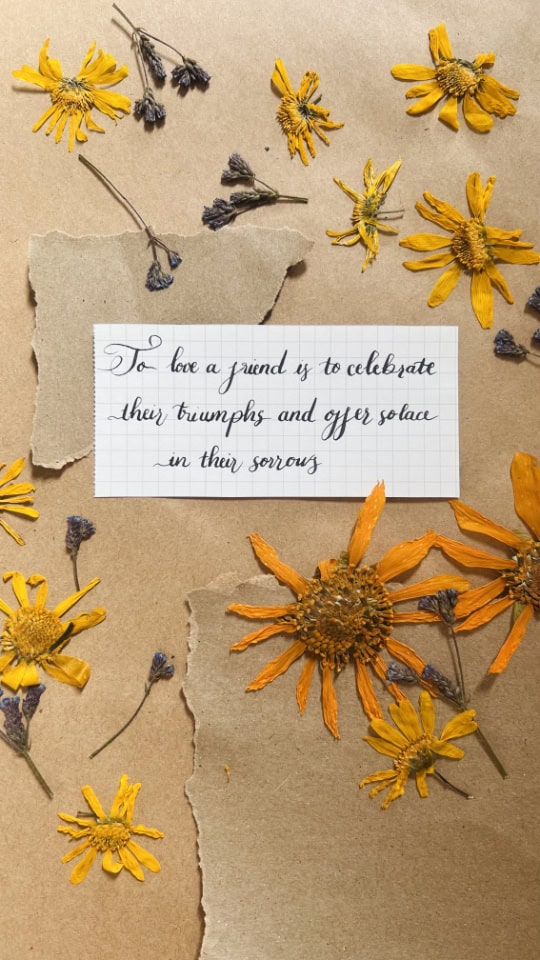 To love a friend is to celebrate
their triumphs and offer solace
in their sorrows